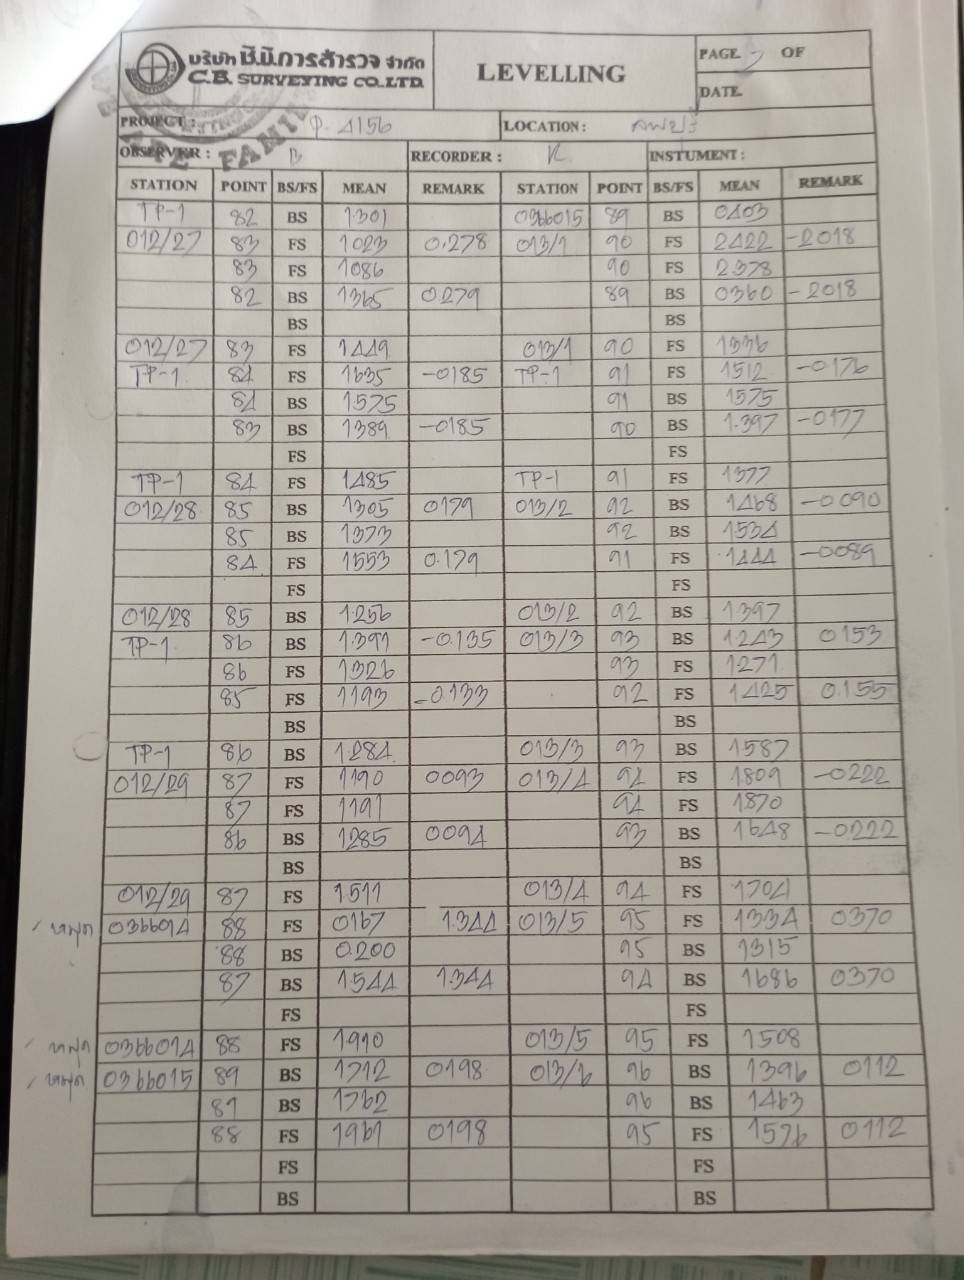 บริษัท ซี.บี.การสำรวจ จำกัด
C.B. SURVEYING CO.,LTD.
LEVELLING
PAGE OF
DATE
PROJECT : P. 4156 LOCATION : ลพบุรี
OBSERVER : B RECORDER : K INSTUMENT :
STATION POINT BS/FS MEAN REMARK STATION POINT BS/FS MEAN REMARK
TP-1 82 BS 1.301 0366015 89 BS 0403
012/27 83 FS 1023 0.278 013/1 90 FS 2422 -2018
83 FS 1086 90 FS 2378
82 BS 1365 0279 89 BS 0360 -2018
BS BS
012/27 83 FS 1449 013/1 90 FS 1336
TP-1 84 FS 1635 -0185 TP-1 91 FS 1512 -0176
84 BS 1575 91 BS 1575
83 BS 1389 -0185 90 BS 1.397 -0177
FS FS
TP-1 84 FS 1485 TP-1 91 FS 1377
012/28 85 BS 1305 0179 013/2 92 BS 1468 -0090
85 BS 1373 92 BS 1534
84 FS 1553 0.179 91 FS 1444 -0089
FS FS
012/28 85 BS 1.256 013/2 92 BS 1.397
TP-1 86 BS 1.391 -0.135 013/3 93 BS 1243 0153
86 FS 1326 93 FS 1271
85 FS 1193 -0.133 92 FS 1425 0.155
BS BS
TP-1 86 BS 1.284 013/3 93 BS 1587
012/29 87 FS 1190 0093 013/4 94 FS 1809 -0222
87 FS 1191 94 FS 1870
86 BS 1285 0094 93 BS 1648 -0222
BS BS
012/29 87 FS 1.511 013/4 94 FS 1704
หมุด 0366014 88 FS 0167 1.344 013/5 95 FS 1334 0370
88 BS 0.200 95 BS 1315
87 BS 1544 1.344 94 BS 1686 0370
FS FS
หมุด 0366014 88 FS 1910 013/5 95 FS 1508
หมุด 0366015 89 BS 1712 0198 013/6 96 BS 1396 0112
89 BS 1762 96 BS 1463
88 FS 1961 0198 95 FS 1576 0112
FS FS
BS BS